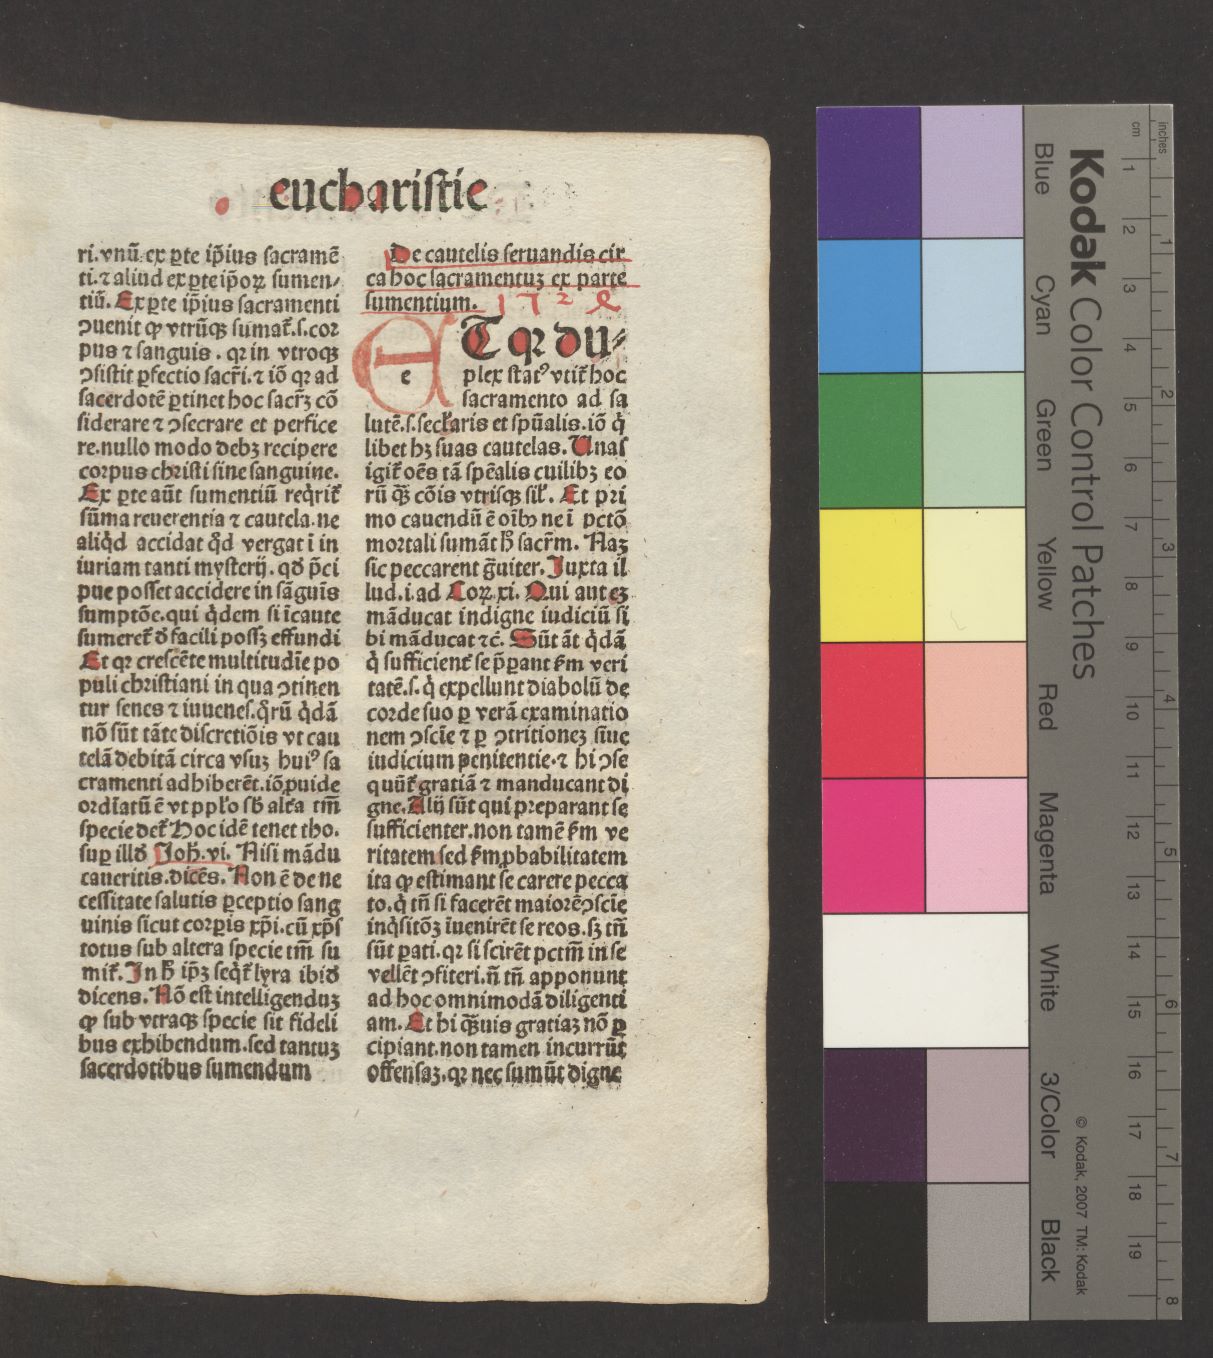 eucharistie
ri. vnū ex ꝑte ip̄ius sacramē
ti. ⁊ aliud ex ꝑte ip̄oꝝ sumen⸗
tiū. Ex ꝑte ip̄ius sacramenti
ꝯuenit ꝙ vtrūqꝫ sumat᷑. s. cor
pus ⁊ sanguis. qꝛ in vtroqꝫ
ꝯsistit ꝑfectio sacr̄i. ⁊ iō qꝛ ad
sacerdotē ꝑtinet hoc sacrꝫ cō
siderare ⁊ ꝯsecrare et perfice
re. nullo modo debꝫ recipere
corpus christi sine sanguine.
Ex ꝑte aūt sumentiū reqͥrit᷑
sūma reuerentia ⁊ cautela. ne
aliqͥd accidat qͦd vergat ī in
iuriam tanti mysterij. qd̓ p̄ci
pue posset accidere in sāguīs
sumptōe. qui qͥdem si īcaute
sumeret᷑ d̓ facili possꝫ effundi
Et qꝛ crescēte multitudīe po
puli christiani in qua ꝯtinen
tur senes ⁊ iuuenes. qͦrū qͥdā
nō sūt tāte discretiōis vt cau
telā debitā circa vsuꝫ huiꝰ sa
cramenti adhiberēt. iō ꝓuide
ordīatū ē vt ppl̓o sb̓ alt̓a tm̄
specie det᷑ Hoc idē tenet tho.
suꝑ illd̓ Joh̄. vi. Nisi mādu
caueritis. dicēs. Non ē de ne
cessitate salutis ꝑceptio sang
uinis sicut corꝑis xp̄i. cū xp̄s
totus sub altera specie tm̄ su
mit᷑. In h̓ ip̄ꝫ seqͥt᷑ lyra ibid̓
dicens. Nō est intelligenduꝫ
ꝙ sub vtraqꝫ specie sit fideli
bus exhibendum. sed tantuꝫ
sacerdotibus sumendum
De cautelis seruandis cir
ca hoc sacramentuꝫ ex parte
sumentium.
ET qꝛ du⸗
e
plex statꝰ vtit᷑ hoc
sacramento ad sa
lutē. s. secl̓aris et spūalis. iō qͥ
libet hꝫ suas cautelas. Unas
igit᷑ oēs tā spēalis cuilibꝫ eo
rū qꝫ̄ cōis vtrisqꝫ sil̓. Et pri
mo cauendū ē oībꝫ ne ī pctō
mortali sumāt h̓ sacrm̄. Naꝫ
sic peccarent gͣuiter. Juxta il
lud. i. ad Coꝝ. xi. Qui auteꝫ
māducat indigne iudiciū si
bi māducat ⁊c̄. Sūt āt qͥdā
qͥ sufficient᷑ se p̄ꝑant ẜm veri
tatē. s. qͥ expellunt diabolū de
corde suo ꝑ verā examinatio
nem ꝯscīe ⁊ ꝑ ꝯtritioneꝫ siue
iudicium penitentie. ⁊ hi ꝯse
quūt᷑ gratiā ⁊ manducant di
gne. Alij sūt qui preparant se
sufficienter. non tamē ẜm ve
ritatem sed ẜm ꝓbabilitatem
ita ꝙ estimant se carere pecca
to. qͥ tn̄ si facerēt maiorē ꝯscīe
inqͥsitōꝫ īuenirēt se reos. sꝫ tn̄
sūt ꝑati. qꝛ si scirēt pctm̄ in se
vellēt ꝯfiteri. n̄ tn̄ apponunt
ad hoc omnimodā diligenti
am. Et hi qꝫ̄uis gratiaꝫ nō ꝑ
cipiant. non tamen incurrūt
offensaꝫ. qꝛ nec sumūt digne
Kodak Color Control Patches
Blue
Cyan
Green
Yellow
Red
Magenta
White
3/Color
Black
© Kodak, 2007 TM: Kodak
cm 1 2 3 4 5 6 7 8 9 10 11 12 13 14 15 16 17 18 19
inches 1 2 3 4 5 6 7 8